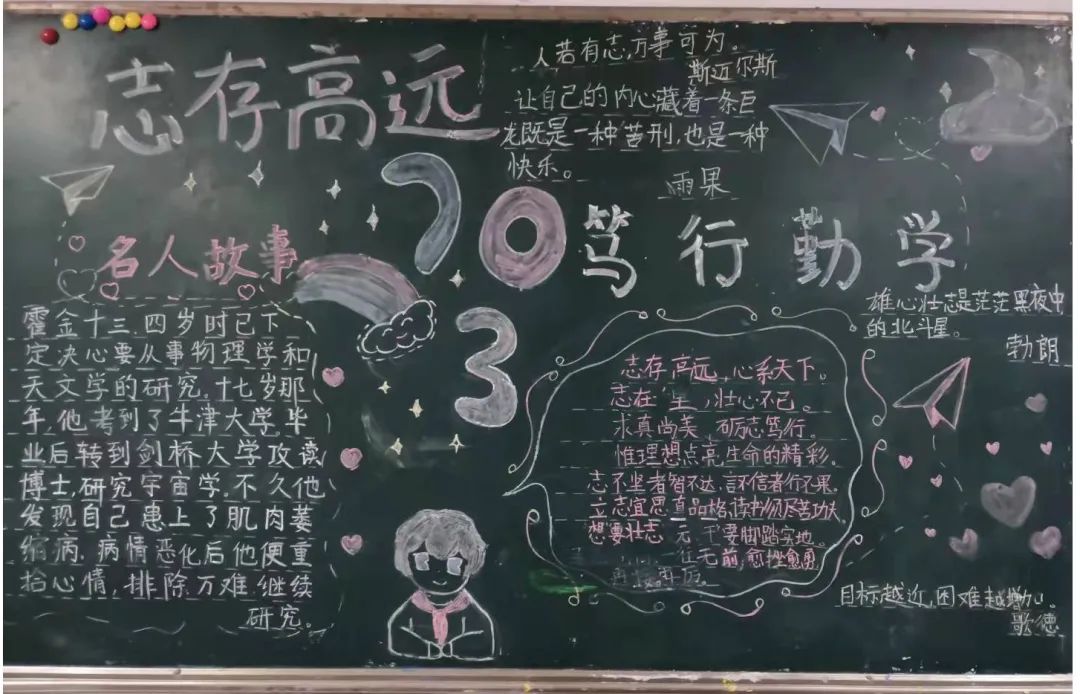 志存高远
人若有志,万事可为。
斯迈尔斯
让自己的内心藏着一条巨
龙既是一种苦刑,也是一种
快乐。
雨果
703
笃行勤学
名人故事
霍金十三.四岁时已下
定决心要从事物理学和
天文学的研究.十七岁那
年,他考到了牛津大学毕
业后转到剑桥大学攻读
博士,研究宇宙学.不久他
发现自己患上了肌肉萎
缩病.病情恶化后他便重
拾心情,排除万难.继续
研究。
雄心壮志是茫茫黑夜中
的北斗星。
勃朗
志存高远,心系天下。
志在 壮心不已。
求真尚美,砺志笃行。
惟理想点亮生命的精彩。
志不坚者智不达,言不信者行不果。
立志宜思真品格,读书须尽苦功夫。
想要壮志 要脚踏实地。
往无前,愈挫愈勇
再接再厉。
目标越近,困难越增加。
歌德